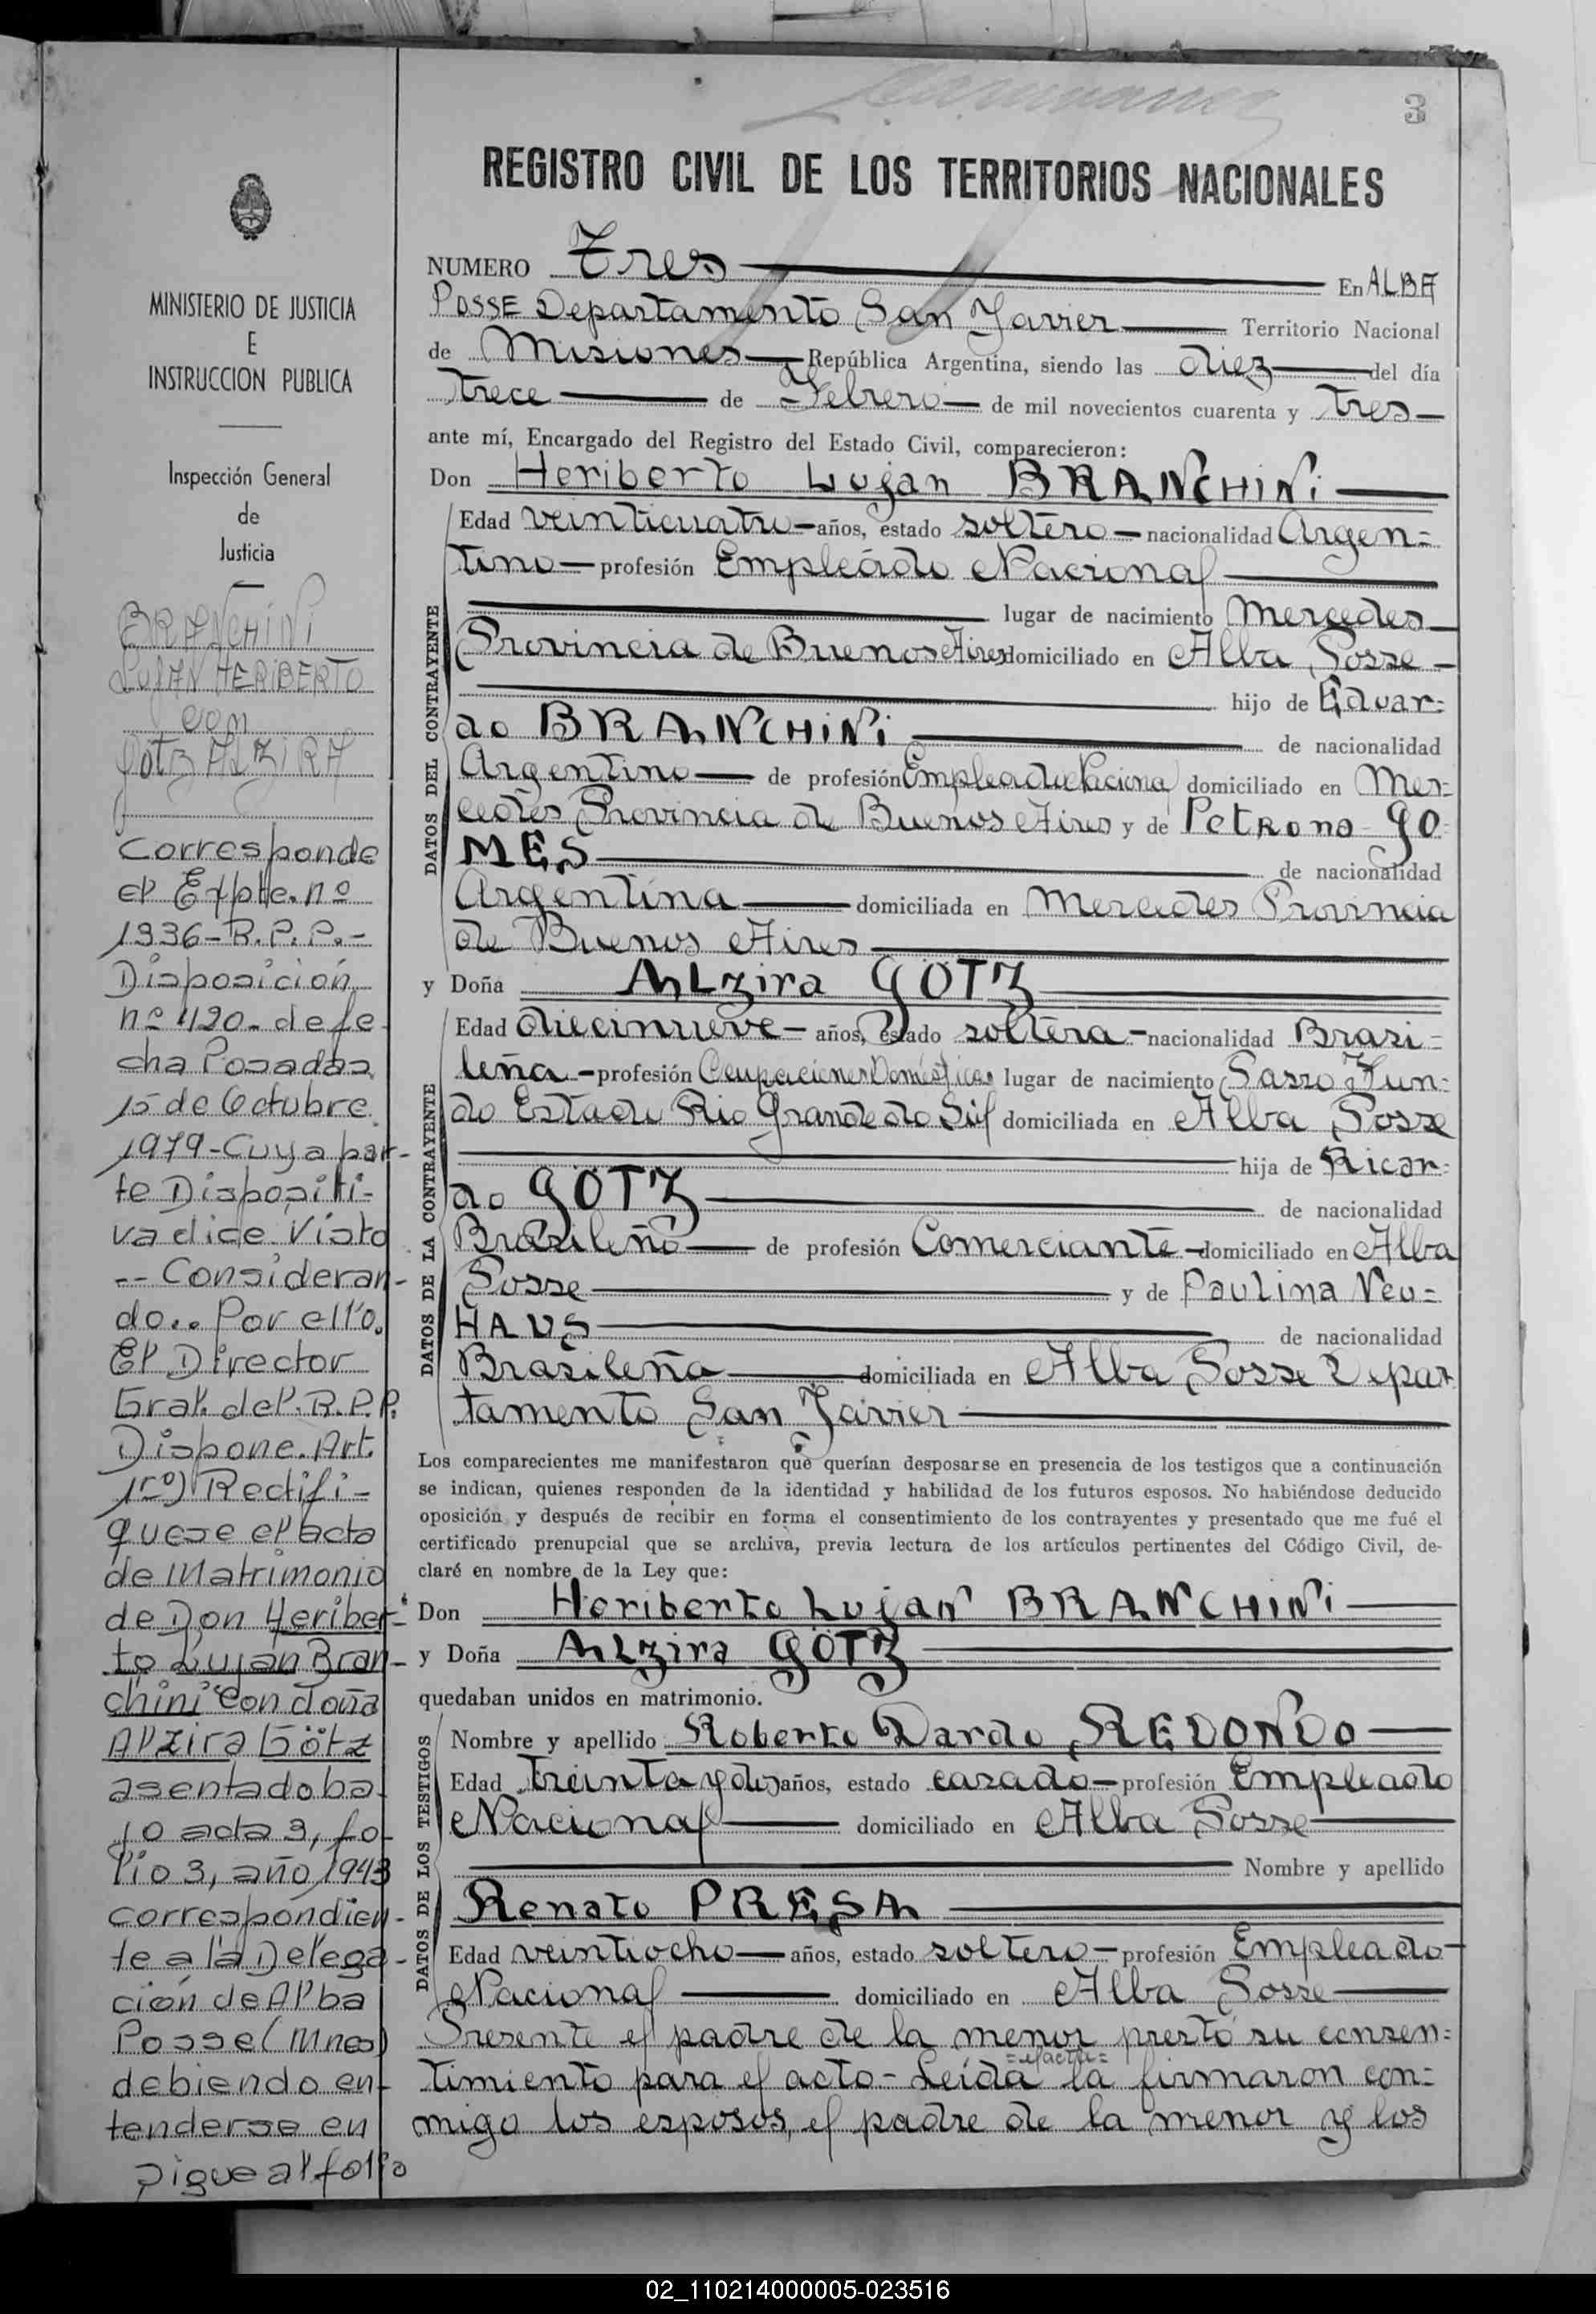 3
REGISTRO CIVIL DE LOS TERRITORIOS NACIONALES
NUMERO Tres En ALBA
POSSE Departamento San Javier Territorio Nacional
de Misiones República Argentina, siendo las diez del día
trece de Febrero de mil novecientos cuarenta y tres
ante mí, Encargado del Registro del Estado Civil, comparecieron:
Don Heriberto Lujan BRANCHINi
DATOS DEL CONTRAYENTE
Edad veinticuatro años, estado soltero nacionalidad Argen=
tino profesión Empleado Nacional
lugar de nacimiento Mercedes
Provincia de Buenos Aires domiciliado en Alba Posse
hijo de Eduar=
do BRANCHiNi de nacionalidad
Argentino de profesión Empleado Nacional domiciliado en Mer=
cedes Provincia de Buenos Aires y de Petrona GO=
MES de nacionalidad
Argentina domiciliada en Mercedes Provincia
de Buenos Aires
y Doña ALzira GÖTZ
DATOS DE LA CONTRAYENTE
Edad diecinueve años, estado soltera nacionalidad Brasi=
leña profesión Ocupaciones Domésticas lugar de nacimiento Passo Fun=
do Estado Rio Grande do Sul domiciliada en Alba Posse
hija de Ricar=
do GÖTZ de nacionalidad
Brasileño de profesión Comerciante domiciliado en Alba
Posse y de Paulina Neu=
HAUS de nacionalidad
Brasileña domiciliada en Alba Posse Depar
tamento San Javier
Los comparecientes me manifestaron que querían desposarse en presencia de los testigos que a continuación
se indican, quienes responden de la identidad y habilidad de los futuros esposos. No habiéndose deducido
oposición y después de recibir en forma el consentimiento de los contrayentes y presentado que me fué el
certificado prenupcial que se archiva, previa lectura de los artículos pertinentes del Código Civil, de-
claré en nombre de la Ley que:
Don Heriberto Lujan BRANCHiNi
y Doña ALzira GÖTZ
quedaban unidos en matrimonio.
DATOS DE LOS TESTIGOS
Nombre y apellido Roberto Dardo REDONDO
Edad treinta y dos años, estado casado profesión Empleado
Nacional domiciliado en Alba Posse
Nombre y apellido
Renato PRESA
Edad veintiocho años, estado soltero profesión Empleado
Nacional domiciliado en Alba Posse
Presente el padre de la menor prestó su consen=
timiento para el acto - Leída =el acta= la firmaron con=
migo los esposos, el padre de la menor y los
MINISTERIO DE JUSTICIA
E
INSTRUCCION PUBLICA
Inspección General
de
Justicia
BRANCHiNi
LUJAN HERiBERTO
con
Götz ALZIRA
Corresponde
el Expte. nº
1936-R.P.P.-
Disposición
nº 420- de fe-
cha Posadas
15 de Octubre
1979- Cuya par-
te Dispositi-
va dice Visto
-- Consideran-
do.. Por ello.
El Director
Gral. del. R.P.P.
Dispone. Art.
1º) Rectifi-
quese el acta
de Matrimonio
de Don Heriber-
to Lujan Bran-
chini con doña
Alzira Götz
asentado ba-
jo acta 3, fo-
lio 3, año 1943
correspondien-
te a la Delega-
ción de Alba
Posse (Mnes)
debiendo en-
tenderse en
sigue al folio
02_110214000005-023516